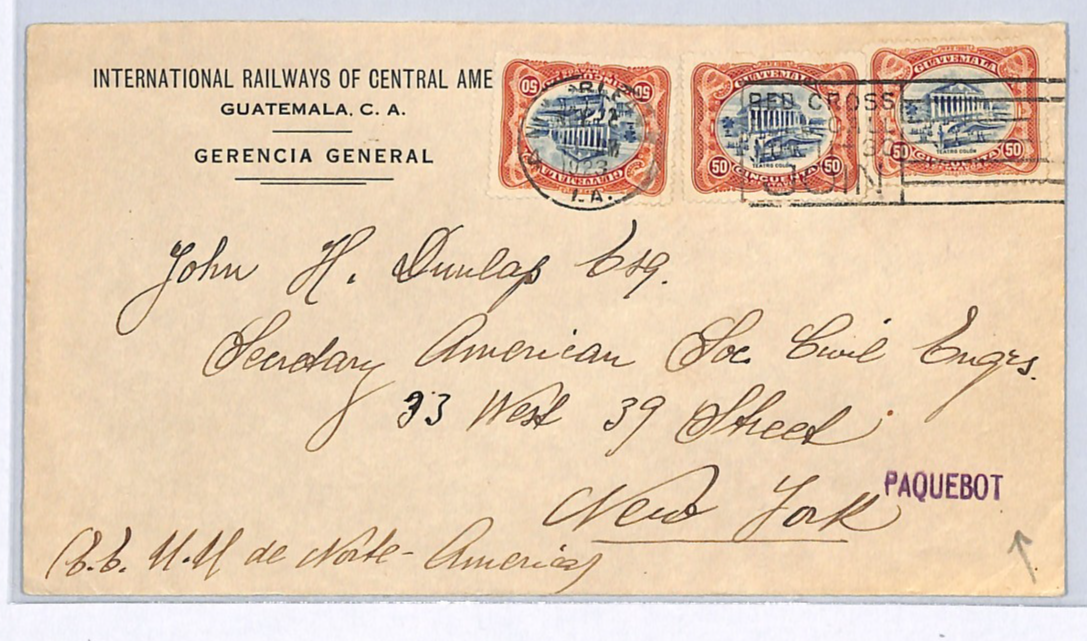 INTERNATIONAL RAILWAYS OF CENTRAL AME
GUATEMALA, C. A.
GERENCIA GENERAL
50 50
1923
LA.
GUATEMALA
TEATRO COLÓN
50 CINCUENTA 50
RED CROSS
JOIN
GUATEMALA
TEATRO COLÓN
50 CINCUENTA 50
John H. Dunlap Esq.
Secretary American Soc Civil Engrs.
33 West 39 Street
New York
PAQUEBOT
(E.E. U.U de Norte-America)